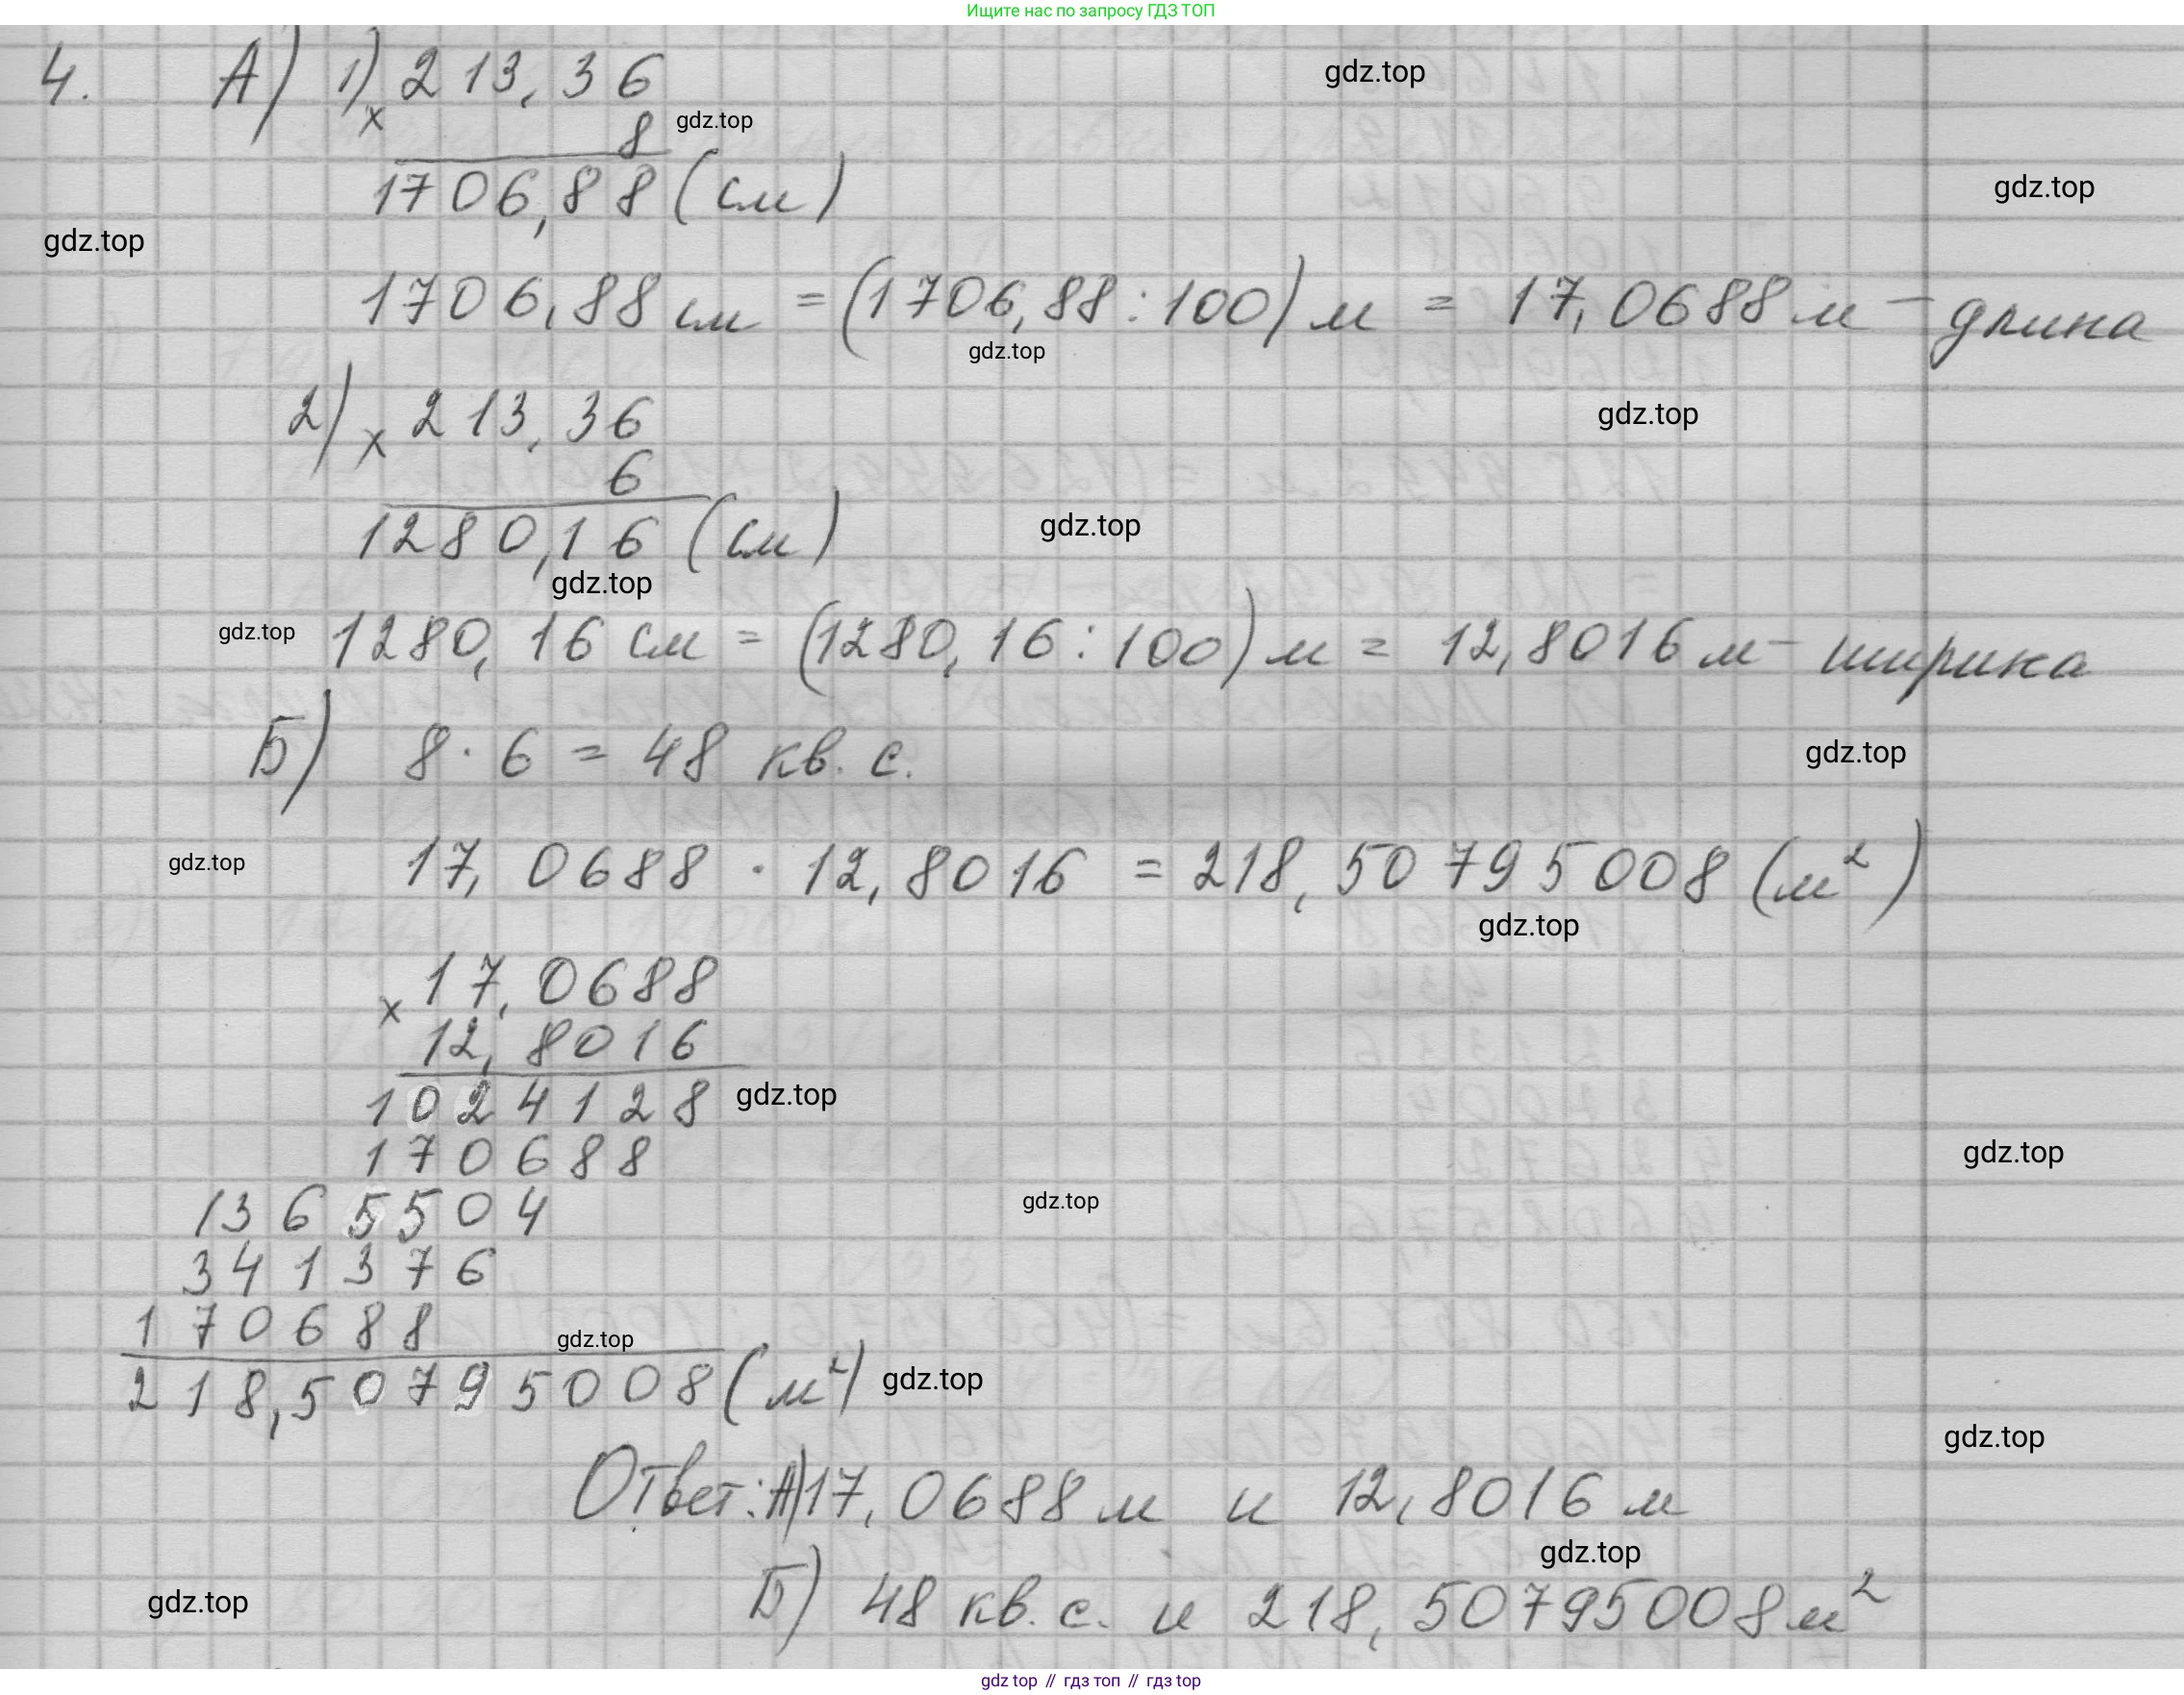 Ищите нас по запросу ГДЗ ТОП
4. А) 1) 213,36
gdz.top
× 8
gdz.top
1706,88 (см)
gdz.top
gdz.top
1706,88 см = (1706,88 : 100) м = 17,0688 м – длина
gdz.top
2) × 213,36
gdz.top
6
1280,16 (см)
gdz.top
gdz.top
gdz.top
1280,16 см = (1280,16 : 100) м = 12,8016 м – ширина
Б) 8 · 6 = 48 кв. с.
gdz.top
gdz.top
17,0688 · 12,8016 = 218,50795008 (м²)
gdz.top
× 17,0688
12,8016
1024128
gdz.top
170688
gdz.top
1365504
gdz.top
341376
170688
gdz.top
218,50795008 (м²)
gdz.top
gdz.top
Ответ: А) 17,0688 м и 12,8016 м
gdz.top
Б) 48 кв. с. и 218,50795008 м²
gdz.top
gdz top // гдз топ // гдз top